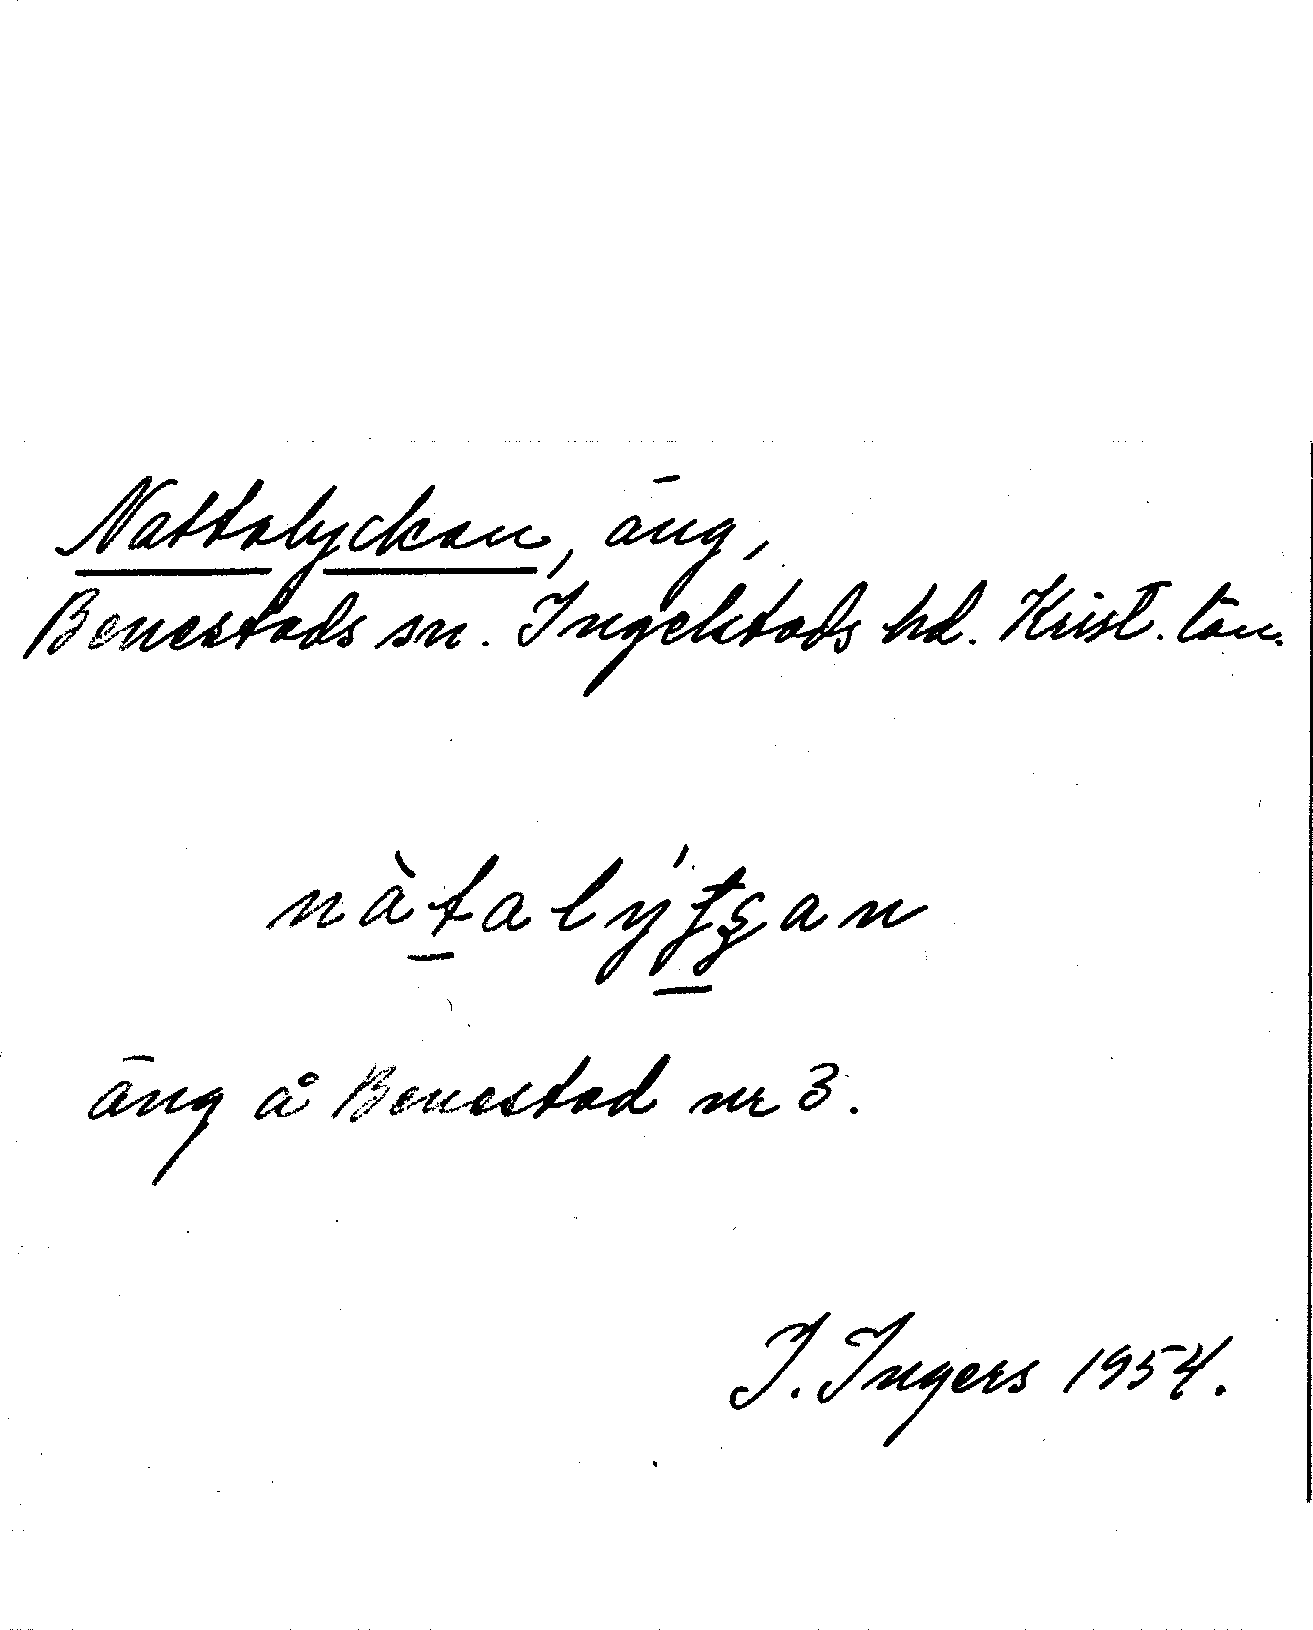 Nattalyckan, äng,
Benestads sn. Ingelstads hd. Krist. län.
nàtalýʈʂan
äng å Benestad nr 3.
I. Ingers 1954.